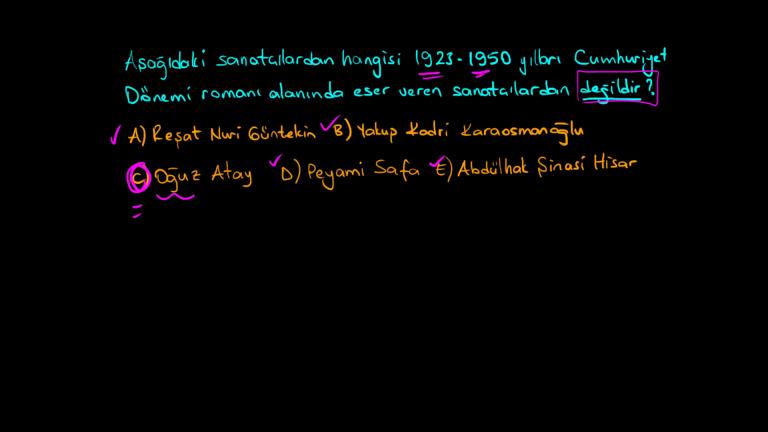 Aşağıdaki sanatçılardan hangisi 1923-1950 yılları Cumhuriyet
Dönemi romanı alanında eser veren sanatçılardan değildir?
A) Reşat Nuri Güntekin B) Yakup Kadri Karaosmanoğlu
C) Oğuz Atay D) Peyami Safa E) Abdülhak Şinasi Hisar